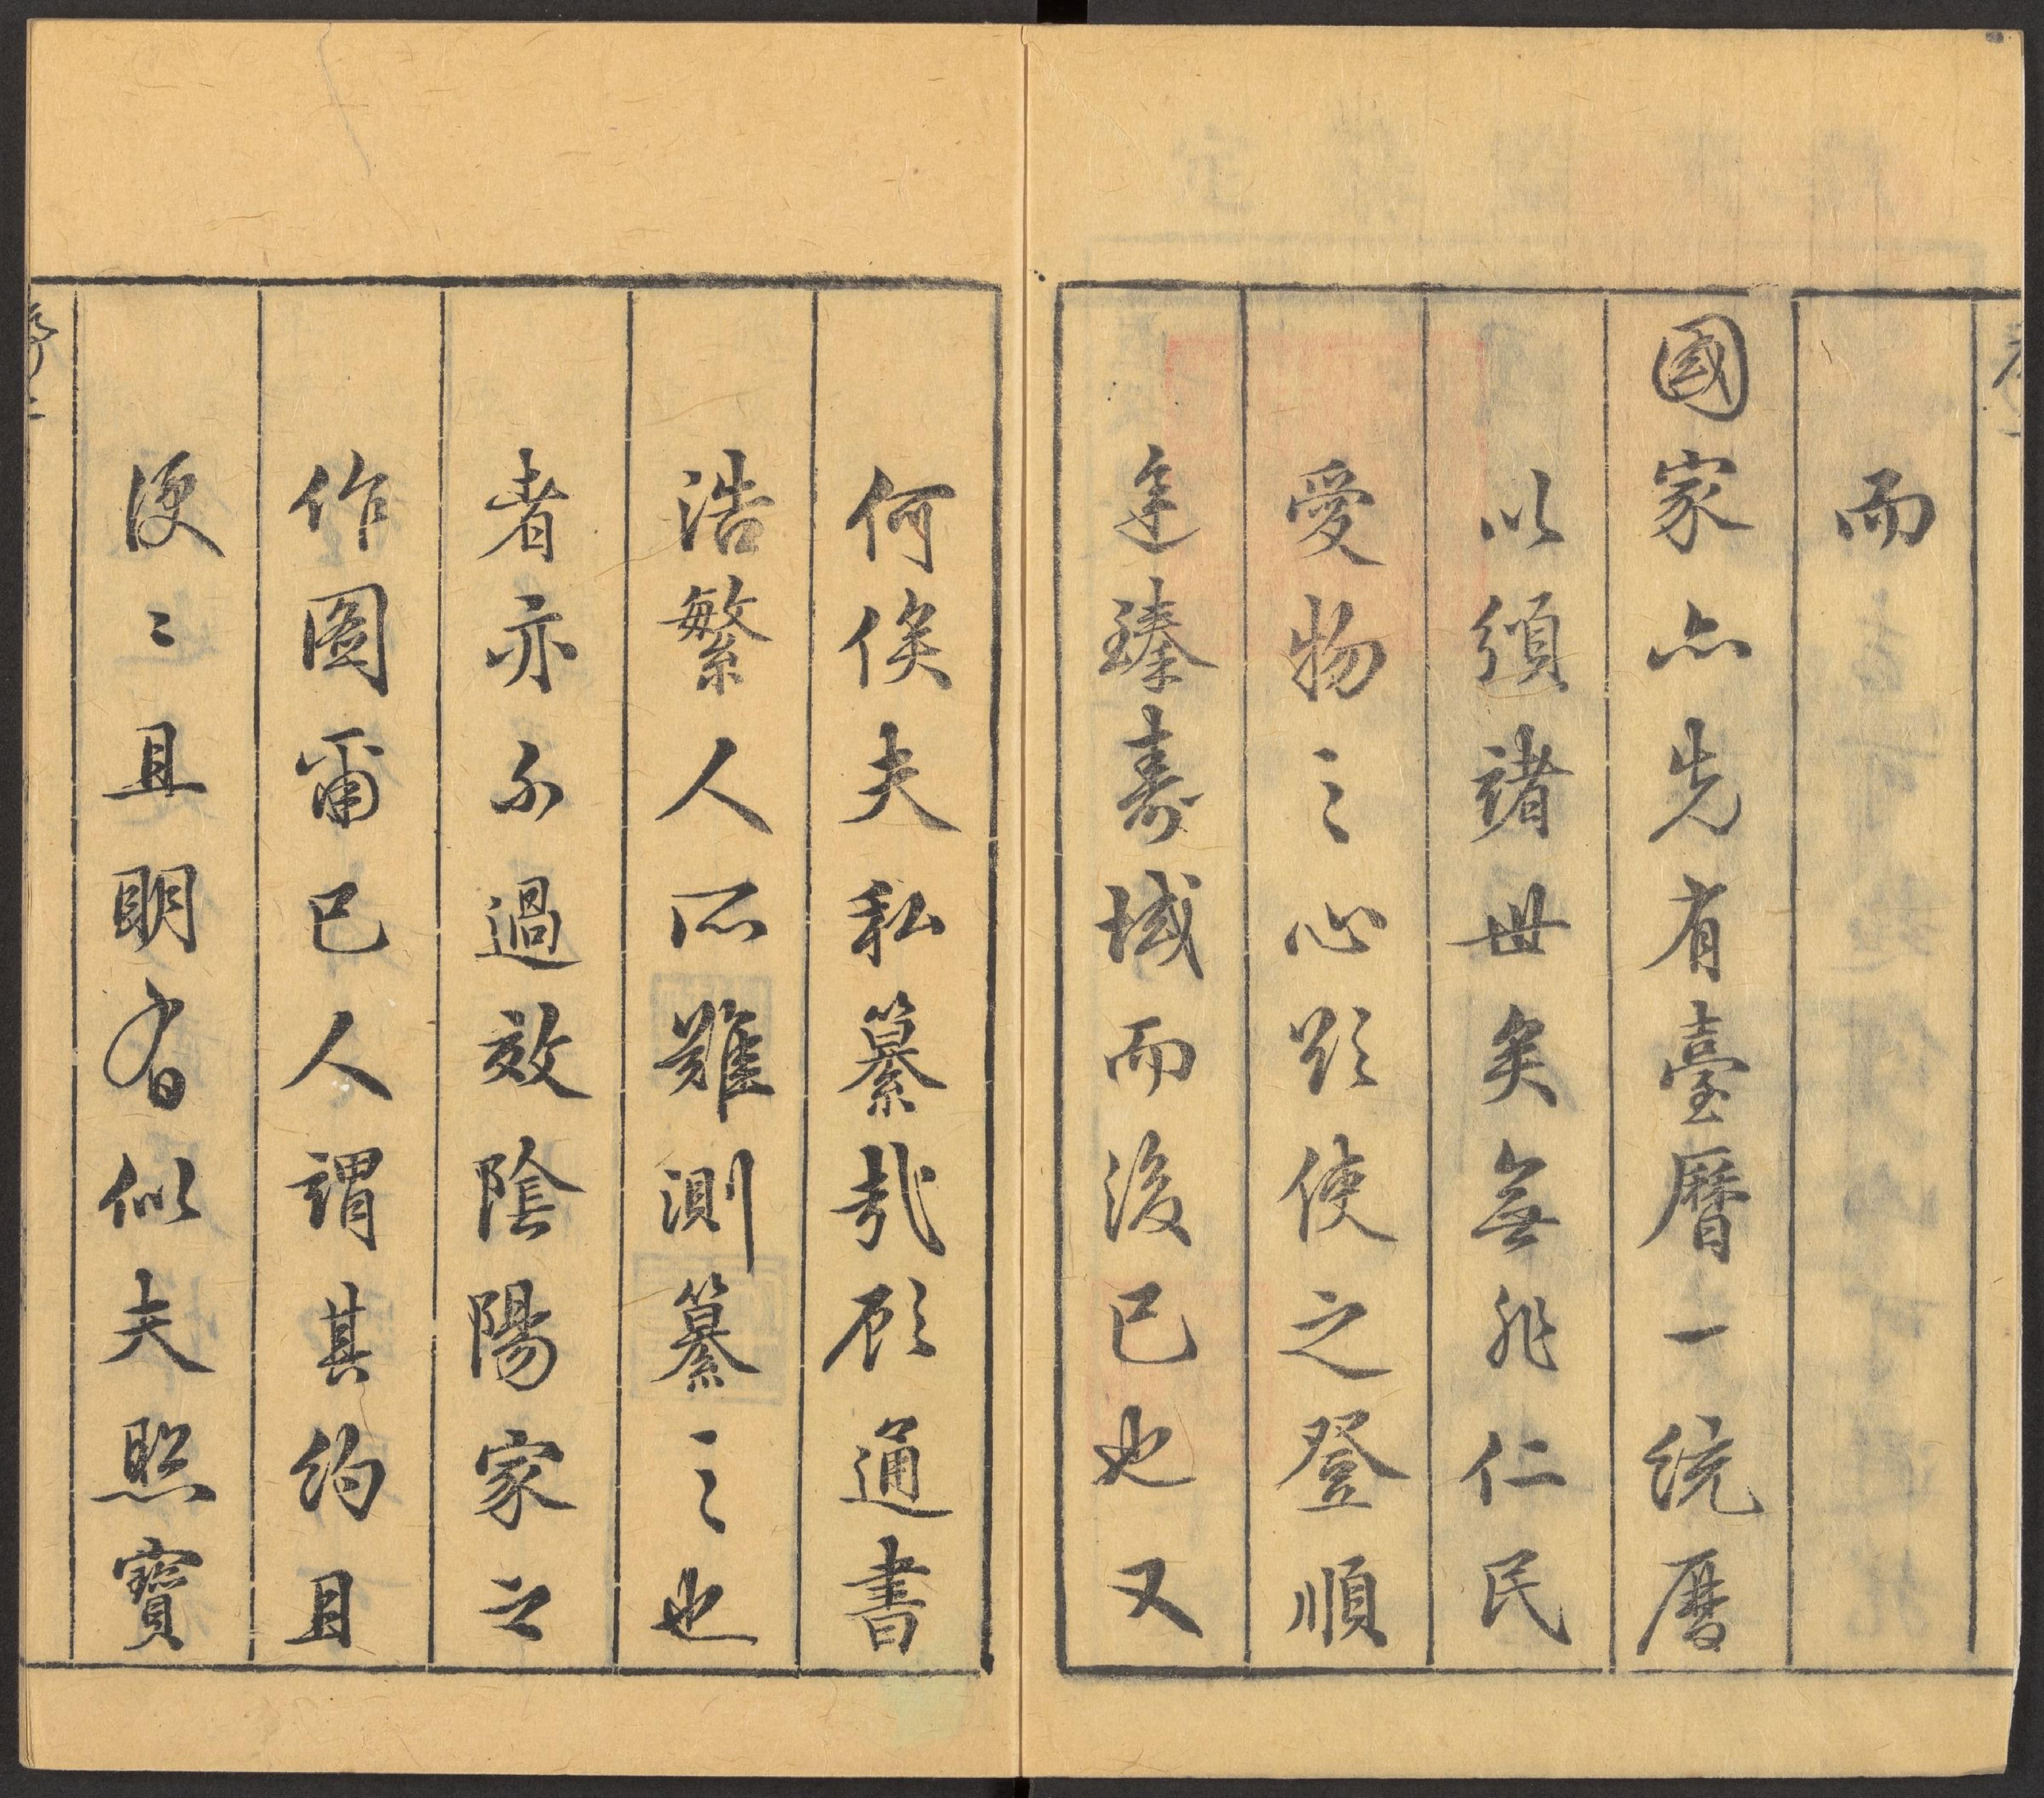 序一
而
國家亦先有臺曆一統曆
以頒諸世矣無非仁民
愛物之心欲使之登順
逵臻壽域而後已也又
何俟夫私纂哉顧通書
浩繁人所難測纂之也
者亦不過效陰陽家之
作圖爾已人謂其約且
便〻且明者似夫照寶
序二